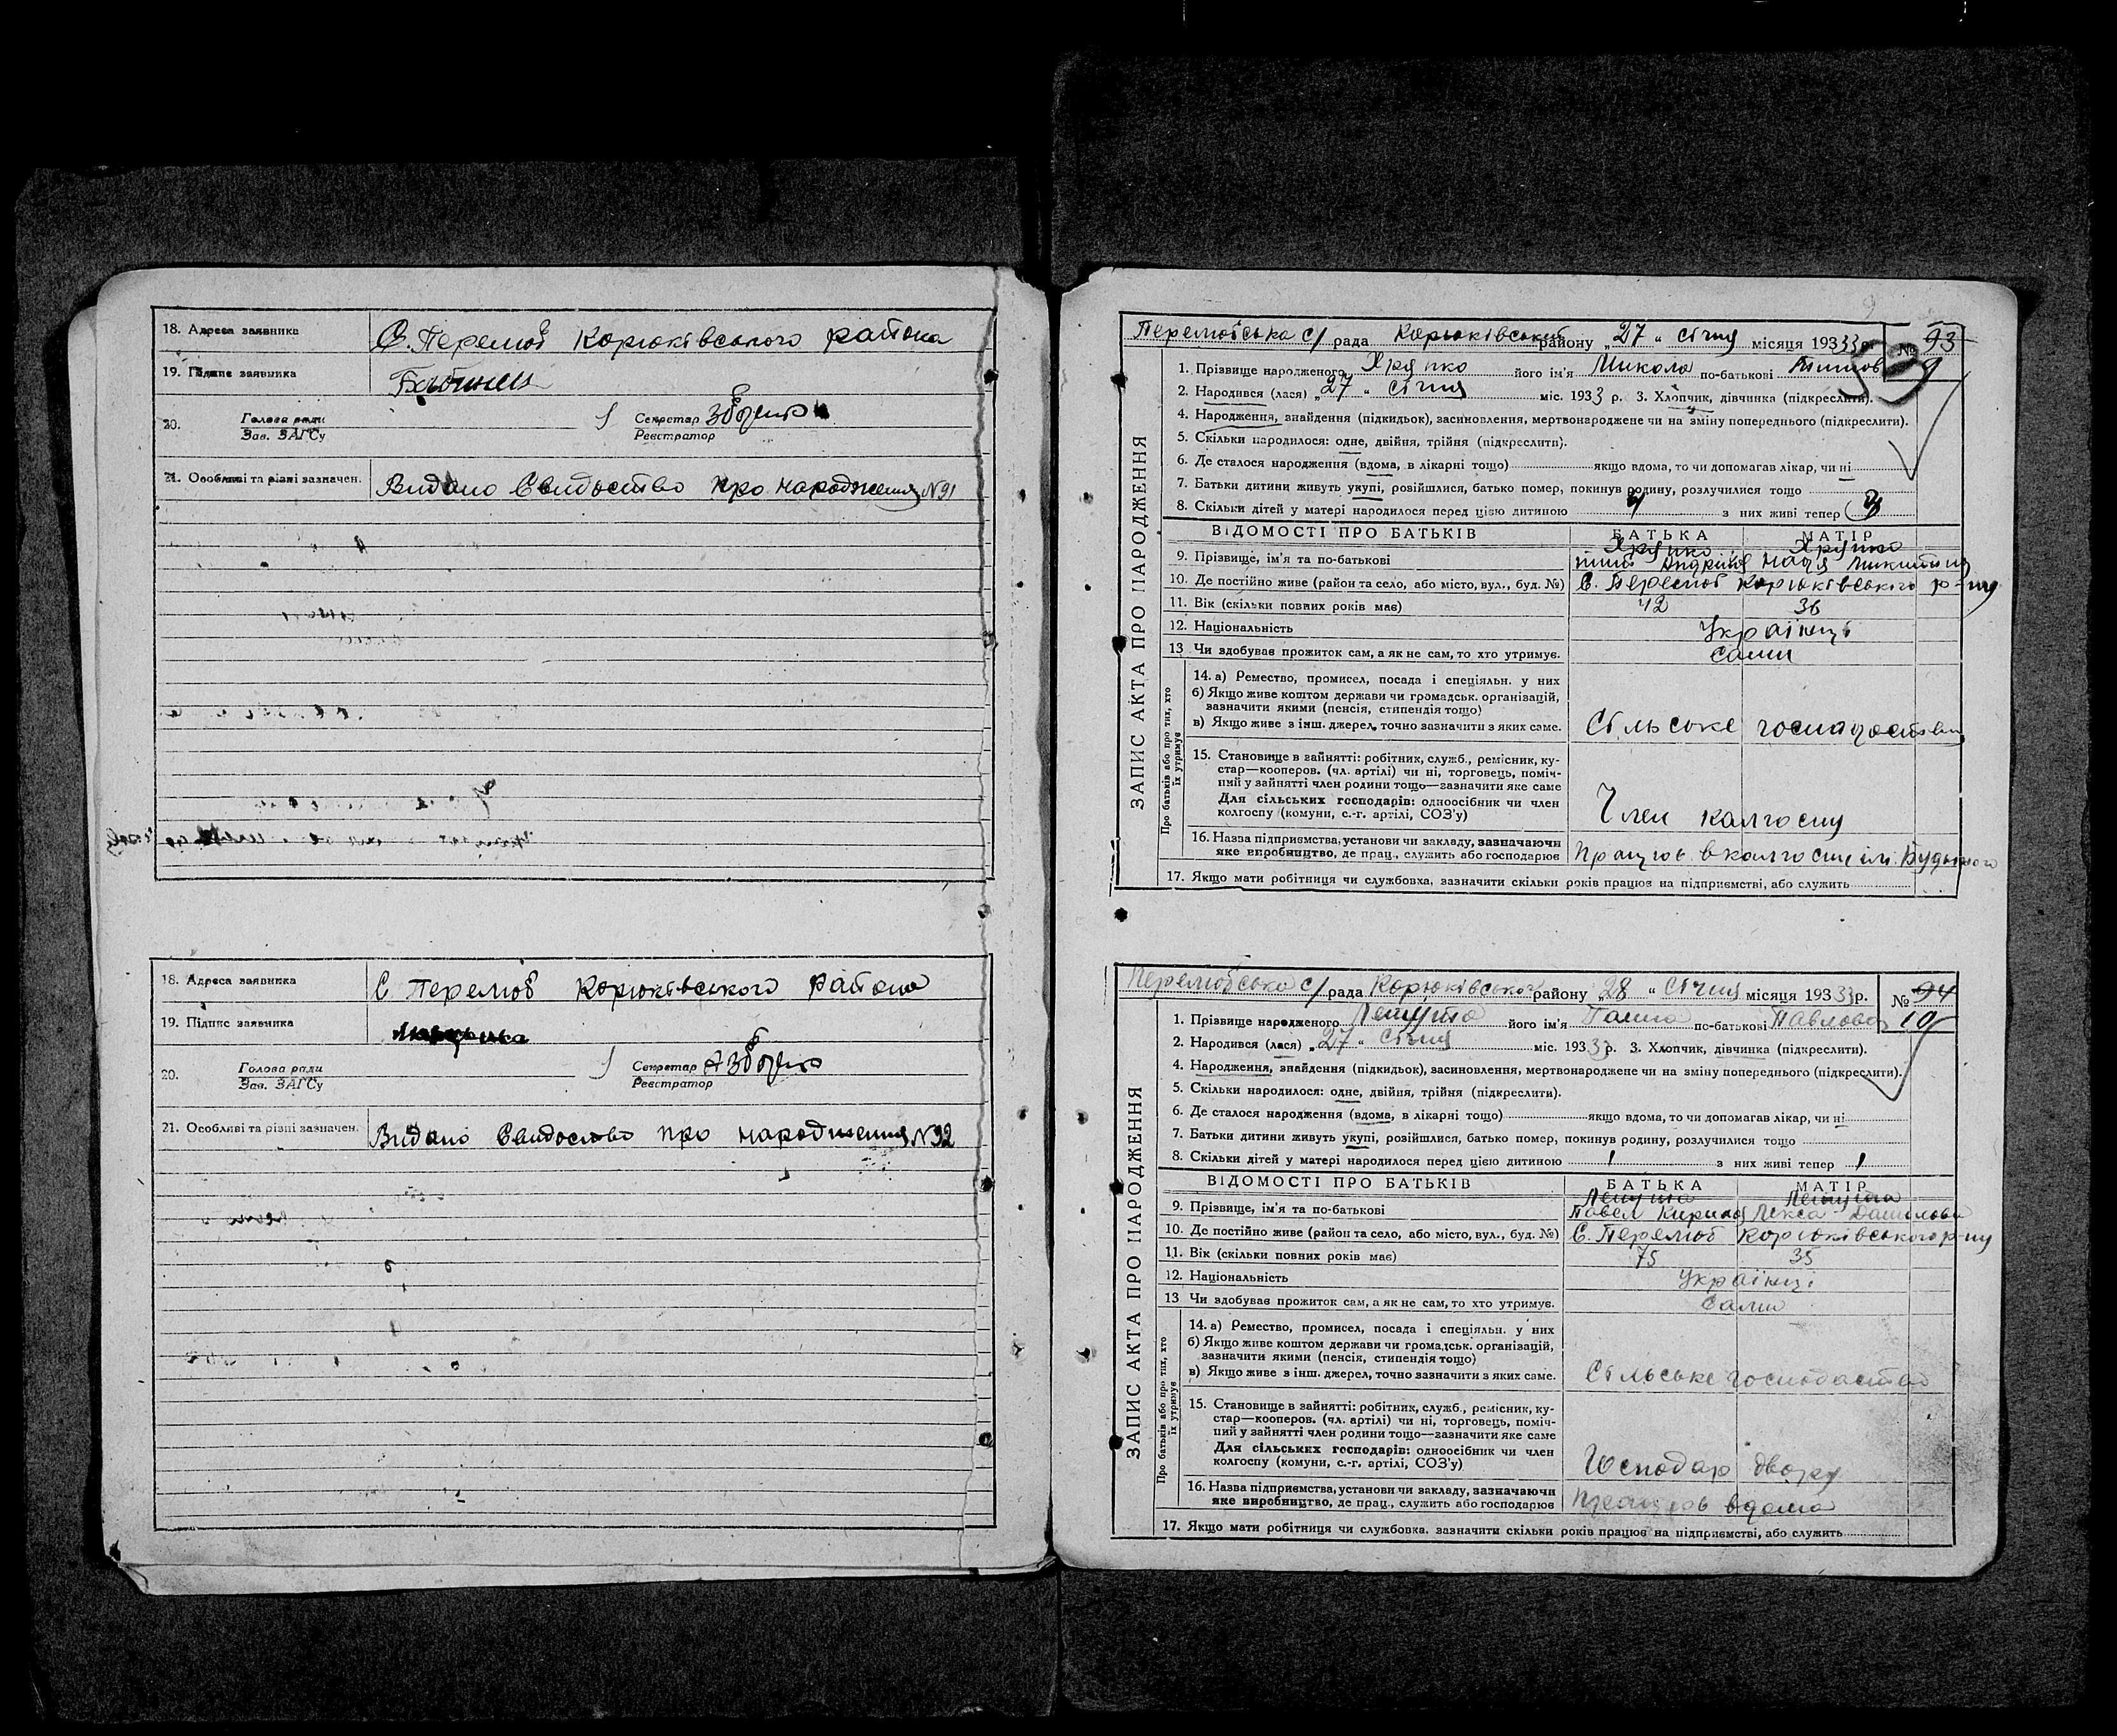 18. Адреса заявника С. Перелюб Корюківського района
19. Підпис заявника
20. Голова ради Секретар
Зав. ЗАГСу Реєстратор
21. Особливі та різні зазначен. Видано Свидоство про народження N 91
18. Адреса заявника С Перелюб Корюківського района
19. Підпис заявника
20. Голова ради Секретар
Зав. ЗАГСу Реєстратор
21. Особливі та різні зазначен. Видано Свидоство про народження N 92
9
Перелюбська с/ рада Корюківський району „27 “ січня місяця 1933 р. № 93
9
1. Прізвище народженого Хрупко його ім'я Микола по-батькові
2. Народився (лася) „27 “ січня міс. 1933 р. 3. Хлопчик, дівчинка (підкреслити).
4. Народження, знайдення (підкидьок), засиновлення, мертвонароджене чи на зміну попереднього (підкреслити).
5. Скільки народилося: одне, двійня, трійня (підкреслити).
6. Де сталося народження (вдома, в лікарні тощо) якщо вдома, то чи допомагав лікар, чи ні
7. Батьки дитини живуть укупі, розійшлися, батько помер, покинув родину, розлучилися тощо
8. Скільки дітей у матері народилося перед цією дитиною з них живі тепер
ЗАПИС АКТА ПРО НАРОДЖЕННЯ
ВІДОМОСТІ ПРО БАТЬКІВ БАТЬКА МАТІР
Хрупко Хрупко
9. Прізвище, ім'я та по-батькові
10. Де постійно живе (район та село, або місто, вул., буд. №) С. Перелюб Корюківського р-ну
11. Вік (скільки повних років має) 42 36
12. Національність Українці
13 Чи здобуває прожиток сам, а як не сам, то хто утримує. Сами
Про батьків або про тих, хто їх утримує
14. а) Ремество, промисел, посада і спеціяльн. у них
б) Якщо живе коштом держави чи громадськ. організацій,
зазначити якими (пенсія, стипендія тощо)
в) Якщо живе з інш. джерел, точно зазначити з яких саме. Сільське господоство
15. Становище в зайнятті: робітник, служб., ремісник, ку-
стар—кооперов. (чл. артілі) чи ні, торговець, поміч-
ний у зайнятті член родини тощо—зазначити яке саме
Для сільських господарів: одноосібник чи член
колгоспу (комуни, с.-г. артілі, СОЗ'у) Член калгоспу
16. Назва підприємства, установи чи закладу, зазначаючи
яке виробництво, де прац., служить або господарює Працює в калгоспі ім. Будьоного
17. Якщо мати робітниця чи службовка, зазначити скільки років працює на підприємстві, або служить
Перелюбська с/ рада Корюківського району „28 “ січня місяця 1933 р. № 94
10
1. Прізвище народженого його ім'я Галина по-батькові Павловна
2. Народився (лася) „27 “ січня міс. 1933 р. 3. Хлопчик, дівчинка (підкреслити).
4. Народження, знайдення (підкидьок), засиновлення, мертвонароджене чи на зміну попереднього (підкреслити).
5. Скільки народилося: одне, двійня, трійня (підкреслити).
6. Де сталося народження (вдома, в лікарні тощо) якщо вдома, то чи допомагав лікар, чи ні
7. Батьки дитини живуть укупі, розійшлися, батько помер, покинув родину, розлучилися тощо
8. Скільки дітей у матері народилося перед цією дитиною 1 з них живі тепер 1
ЗАПИС АКТА ПРО НАРОДЖЕННЯ
ВІДОМОСТІ ПРО БАТЬКІВ БАТЬКА МАТІР
9. Прізвище, ім'я та по-батькові Павел
10. Де постійно живе (район та село, або місто, вул., буд. №) С. Перелюб Корюківського р-ну
11. Вік (скільки повних років має) 75 35
12. Національність Українці
13 Чи здобуває прожиток сам, а як не сам, то хто утримує. Сами
Про батьків або про тих, хто їх утримує
14. а) Ремество, промисел, посада і спеціяльн. у них
б) Якщо живе коштом держави чи громадськ. організацій,
зазначити якими (пенсія, стипендія тощо)
в) Якщо живе з інш. джерел, точно зазначити з яких саме. Сільське господаство
15. Становище в зайнятті: робітник, служб., ремісник, ку-
стар—кооперов. (чл. артілі) чи ні, торговець, поміч-
ний у зайнятті член родини тощо—зазначити яке саме
Для сільських господарів: одноосібник чи член
колгоспу (комуни, с.-г. артілі, СОЗ'у) Господар двору
16. Назва підприємства, установи чи закладу, зазначаючи
яке виробництво, де прац., служить або господарює Працює вдома
17. Якщо мати робітниця чи службовка, зазначити скільки років працює на підприємстві, або служить